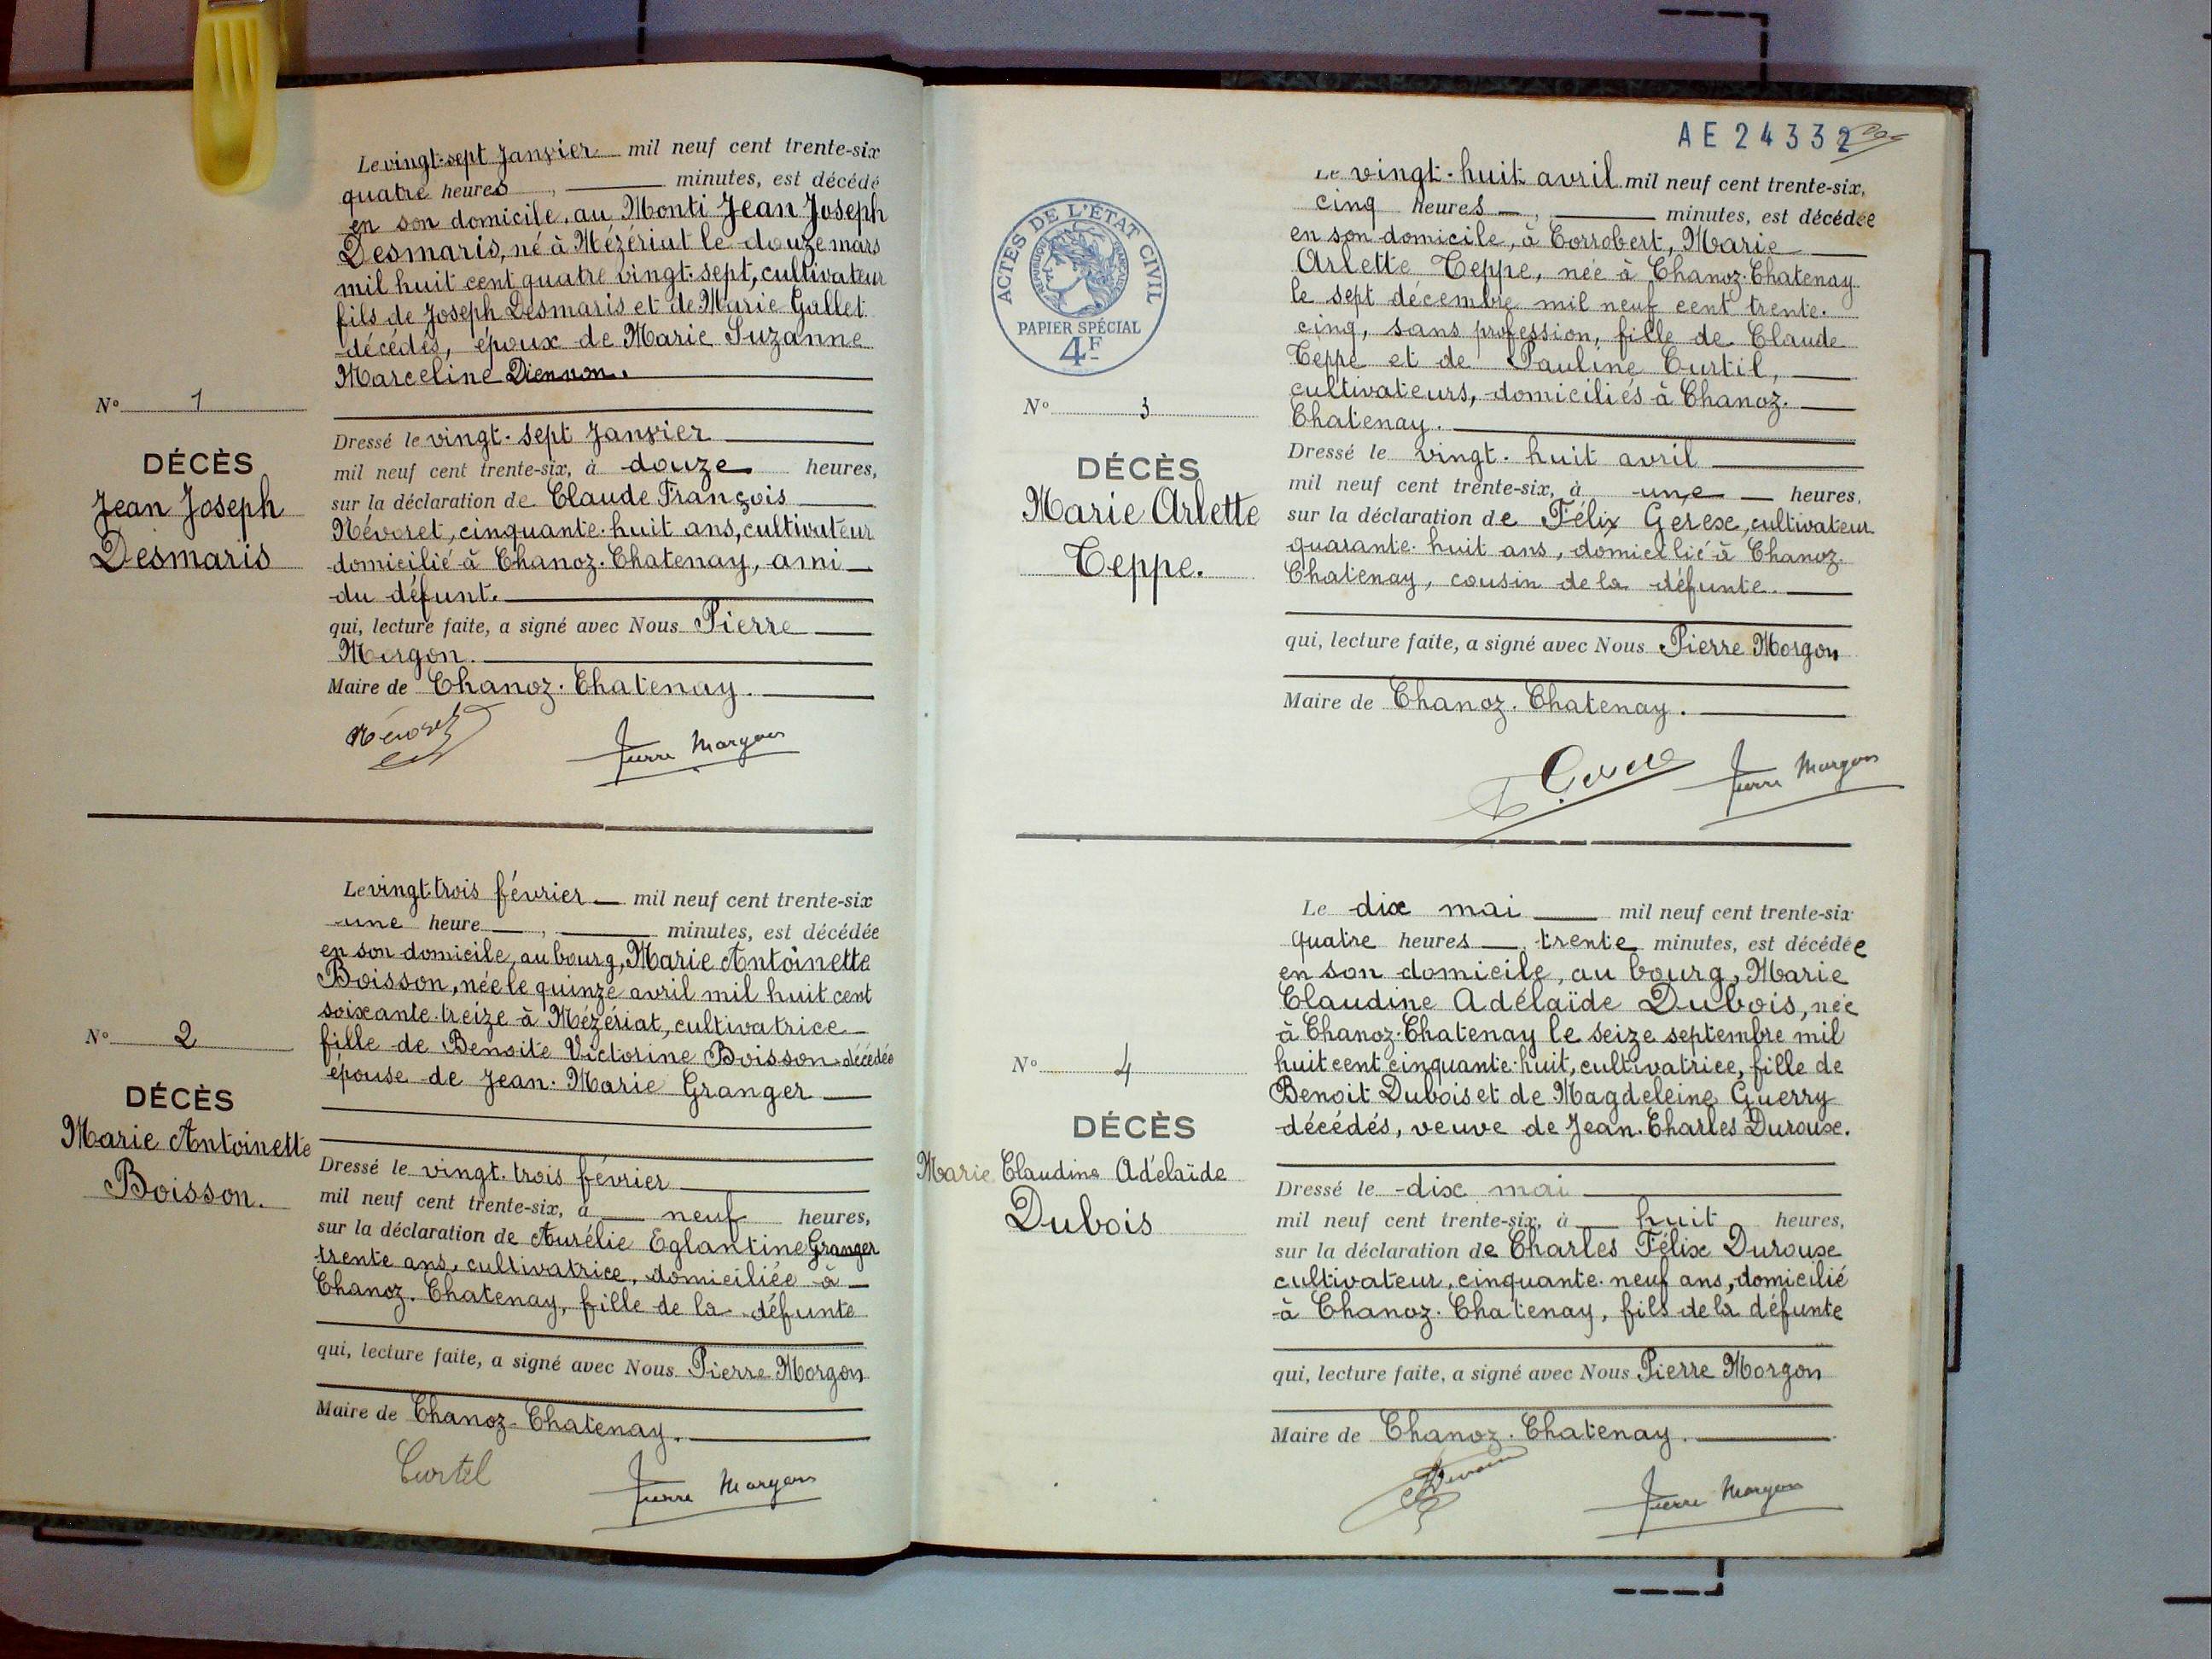 Le vingt-sept Janvier mil neuf cent trente-six
quatre heures, minutes, est décédé
en son domicile, au Monti Jean Joseph
Desmaris, né à Mézériat le douze mars
mil huit cent quatre vingt-sept, cultivateur
fils de Joseph Desmaris et de Marie Gallet
décédés, époux de Marie Suzanne
Marceline Diennon.
N° 1
DÉCÈS
Jean Joseph
Desmaris
Dressé le vingt-sept Janvier
mil neuf cent trente-six, à douze heures,
sur la déclaration de Claude François
Névoret, cinquante-huit ans, cultivateur
domicilié à Chanoz-Chatenay, ami
du défunt.
qui, lecture faite, a signé avec Nous Pierre
Morgon.
Maire de Chanoz-Chatenay.
Névoret
Pierre Morgon
Le vingt-trois février mil neuf cent trente-six
une heure, minutes, est décédée
en son domicile, au bourg, Marie Antoinette
Boisson, née le quinze avril mil huit cent
soixante-treize à Mézériat, cultivatrice
fille de Benoite Victorine Boisson décédée
épouse de Jean-Marie Granger
N° 2
DÉCÈS
Marie Antoinette
Boisson.
Dressé le vingt-trois février
mil neuf cent trente-six, à neuf heures,
sur la déclaration de Aurélie Eglantine Granger
trente ans, cultivatrice, domiciliée à
Chanoz-Chatenay, fille de la défunte
qui, lecture faite, a signé avec Nous Pierre Morgon
Maire de Chanoz-Chatenay.
Curtil
Pierre Morgon
AE 24332
ACTES DE L'ÉTAT CIVIL
RÉPUBLIQUE FRANÇAISE
PAPIER SPÉCIAL
4F
Le vingt-huit avril mil neuf cent trente-six,
cinq heures, minutes, est décédée
en son domicile, à Corrobert, Marie
Arlette Teppe, née à Chanoz-Chatenay
le sept décembre mil neuf cent trente-
cinq, sans profession, fille de Claude
Teppe et de Pauline Curtil,
cultivateurs, domiciliés à Chanoz-
Chatenay.
N° 3
DÉCÈS
Marie Arlette
Teppe.
Dressé le vingt-huit avril
mil neuf cent trente-six, à une heures,
sur la déclaration de Félix Gerex, cultivateur
quarante-huit ans, domicilié à Chanoz-
Chatenay, cousin de la défunte.
qui, lecture faite, a signé avec Nous Pierre Morgon
Maire de Chanoz-Chatenay.
Pierre Morgon
Le dix mai mil neuf cent trente-six
quatre heures, trente minutes, est décédée
en son domicile, au bourg, Marie
Claudine Adélaïde Dubois, née
à Chanoz-Chatenay le seize septembre mil
huit cent cinquante-huit, cultivatrice, fille de
Benoit Dubois et de Magdeleine Guerry
décédés, veuve de Jean-Charles Duroux.
N° 4
DÉCÈS
Marie Claudine Adélaïde
Dubois
Dressé le dix mai
mil neuf cent trente-six, à huit heures,
sur la déclaration de Charles Félix Duroux
cultivateur, cinquante-neuf ans, domicilié
à Chanoz-Chatenay, fils de la défunte
qui, lecture faite, a signé avec Nous Pierre Morgon
Maire de Chanoz-Chatenay.
Pierre Morgon